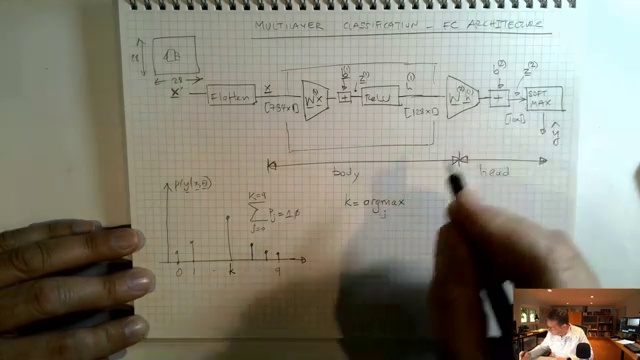 MULTILAYER CLASSIFICATION - FC ARCHITECTURE
28
28
X
Flatten
x
[784x1]
W(1) x
b(1)
+
z(1)
ReLU
h(1)
[128x1]
W(2) h(1)
b(2)
+
z(2)
[10x1]
SOFT
MAX
ŷ
body
head
p(y|x,θ)
K=9
∑ Pj = 1.0
j=0
K = argmax
j
0 1 k 9